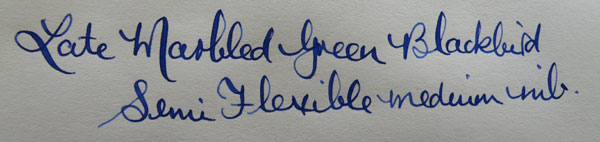 Late Marbled Green Blackbird
Semi Flexible medium nib.